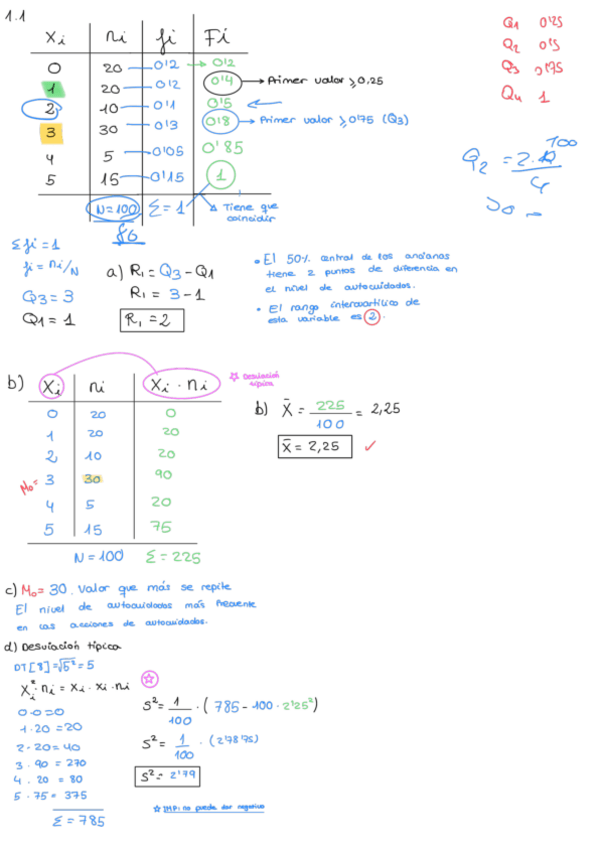 1.1
Xi ni fi Fi
0 20 0'2 0'2
1 20 0'2 0'4 → Primer valor ⩾ 0,25
2 10 0'1 0'5 ←
3 30 0'3 0'8 → Primer valor ⩾ 0'75 (Q3)
4 5 0'05 0'85
5 15 0'15 1
N=100 Σ=1 Tiene que
coincidir
80
Q1 0'25
Q2 0'5
Q3 0'75
Q4 1
Σfi = 1
fi = ni/N
Q3 = 3
Q1 = 1
a) R1 = Q3 - Q1
R1 = 3 - 1
R1 = 2
• El 50% central de las ancianas
tiene 2 puntos de diferencia en
el nivel de autocuidados.
• El rango intercuartílico de
esta variable es 2.
b) Xi ni Xi · ni ☆ Desviación
típica
0 20 0
1 20 20
2 10 20
Mo= 3 30 90
4 5 20
5 15 75
N=100 Σ=225
b) X̄ = 225/100 = 2,25
X̄ = 2,25 ✓
c) Mo = 30. Valor que más se repite
El nivel de autocuidados más frecuente
en las acciones de autocuidados.
d) Desviación típica
= √5² = 5
Xi² · ni = Xi · Xi · ni ☆
0·0=0
1·20=20
2·20=40
3·90=270
4·20=80
5·75=375
Σ=785
S² = 1/100 · (785 - 100 · 2'25²)
S² = 1/100 · (2'7875)
S² = 2'79
☆ IMP: no puede dar negativo